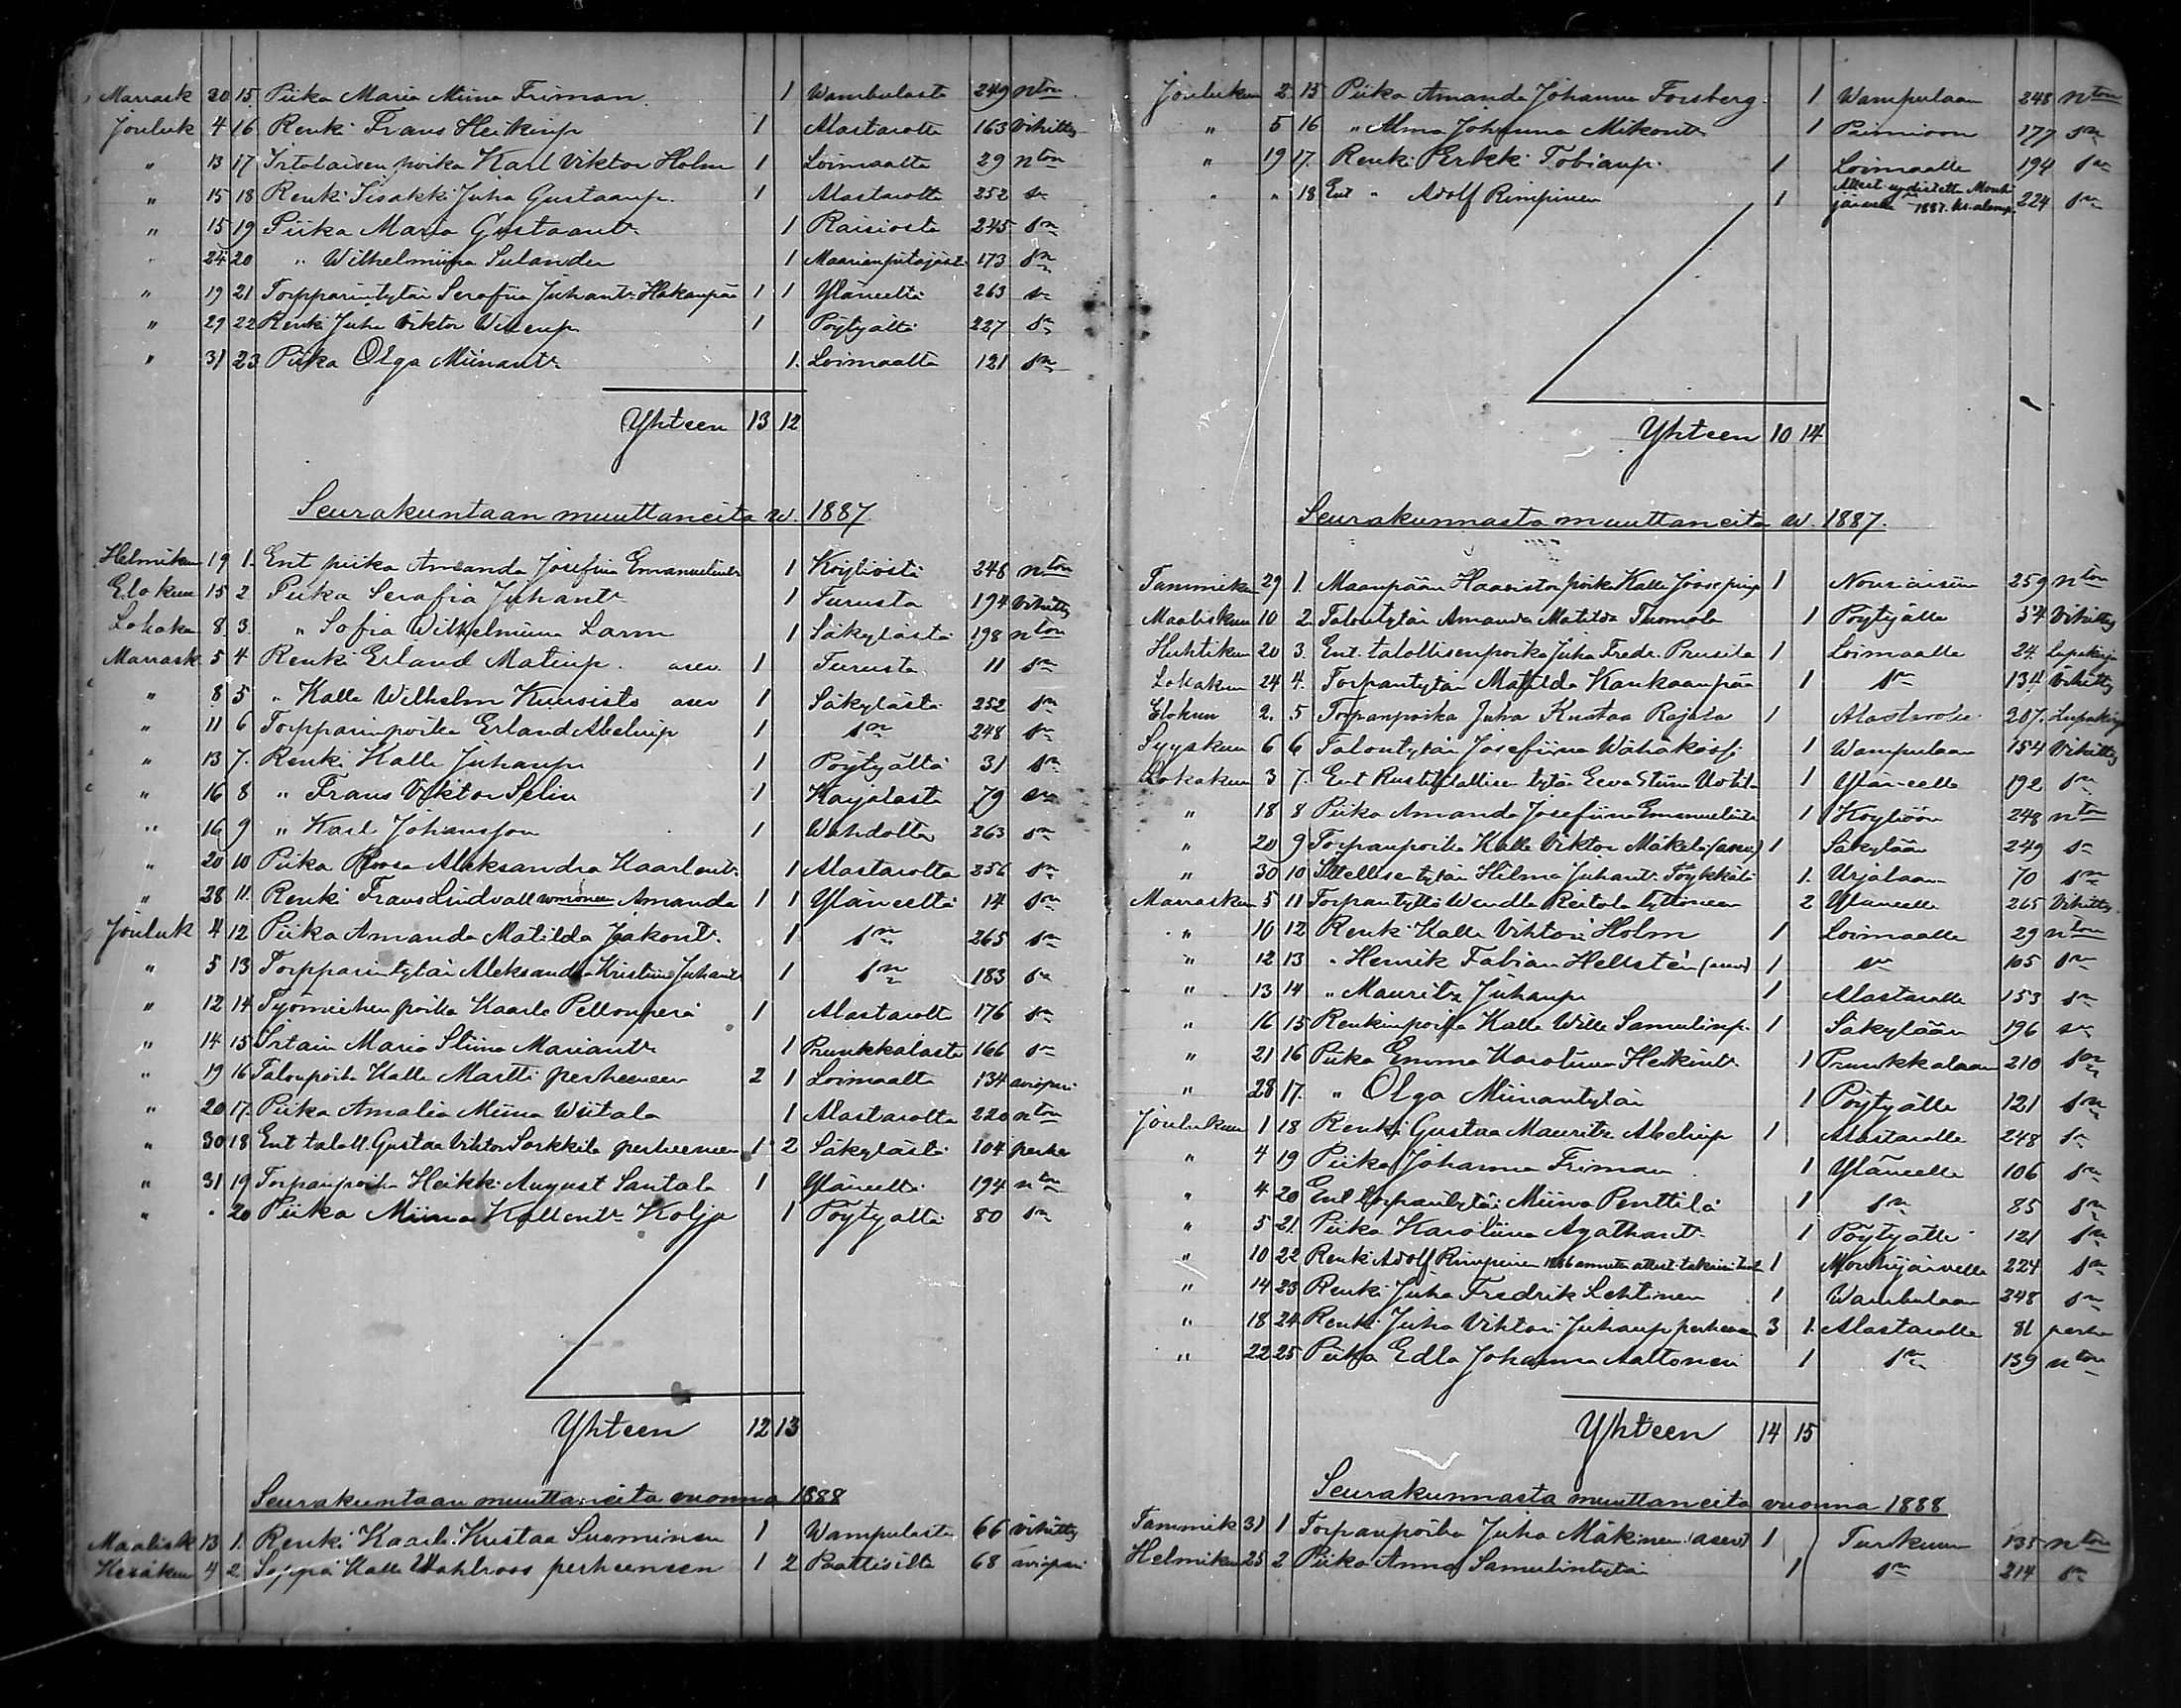 Marrask 30 15. Piika Maria Miina Friman. 1 Wambulasta 249 nton
Jouluk 4 16 Renki Frans Heikinp 1 Alastarolta 163 Vihitty
" 13 17 Irtolaisen poika Karl Viktor Holm 1 Loimaalta 29 nton
" 15 18 Renki Iisakki Juha Gustaanp. 1 Alastarolta 252 sn
" 15 19 Piika Maria Gustaant. 1 Raisiosta 245 sn
24 20 " Wilhelmiina Sulander 1 173 sn
" 19 21 Torpparintytär Serafia Juhant. Hakanpää 1 1 Yläneeltä 263 sn
" 29 22 Renki Juha Viktor 1 Pöytyältä 227 sn
" 31 23 Piika Olga Miinant. 1. Loimaalta 121 sn
Yhteen 13 12
Seurakuntaan muuttaneita w. 1887
Helmikuu 19 1. Ent piika Amanda Josefina Emanuelint. 1 Köyliöstä 248 nton
Elokuu 15 2 Piika Serafia Juhant. 1 Turusta 194 Vihitty
Lokaku 8. 3. " Sofia Wilhelmiina Larm 1 Säkylästä 198 nton
Marrask 5 4 Renki Erland Matinp. asev. 1 Turusta 11 sn
" 8 5 " Kalle Wilhelm Kuusisto asev 1 Säkylästä 252 sn
" 11 6 Torpparinpoika Erland Abelinp 1 sn 248 sn
" 13 7. Renki Kalle Juhanp. 1 Pöytyältä 31 sn
" 16 8 " Frans Viktor Selin 1 Karjalasta 79 sn
" 16 9 " Karl Johansson 1 Wahdolta 263 sn
" 20 10 Piika Roosa Aleksandra Kaarlont. 1 Alastarolta 256 sn
" 28 11. Renki Frans Lindvall wmoneen Amanda 1 1 Yläneeltä 14 sn
Jouluk 4 12 Piika Amanda Matilda Jaakont. 1 sn 265 sn
" 5 13 Torpparintytär Aleksandra Kristiina Juhant. 1 sn 183 sn
" 12 14 Työmiehen poika Kaarlo Pellonperä 1 Alastarolta 176 sn
" 14 15 Irtain Maria Stiina Mariant. 1 Prunkkalasta 166 sn
" 19 16 Talonpoika Kalle Martti perheeneen 2 1 Loimaalta 134 aviopari
" 20 17. Piika Amalia Miina Wiitala 1 Alastarolta 220 nton
" 30 18 Ent taloll. Gustaa Viktor Sorkkila perheeneen 1 2 Säkylästä 104 perhe
" 31 19 Torpanpoika Heikki August Santala 1 Yläneeltä 194 nton
" " 20 Piika Miina Kallent. Kolja 1 Pöytyältä 80 sn
Yhteen 12 13
Seurakuntaan muuttaneita vuonna 1888
Maalisk 13 1. Renki Kaarle Kustaa Suominen 1 Wampulasta 66 vihitty
Kesäkuu 4 2. Seppä Kalle Wahlroos perheeneen 1 2 Paattisilta 68 aviopari
Joulukuu 2. 15 Piika Amanda Johanna Forsberg. 1 Wampulaan 248 nton
" 5 16 " Alma Johanna Mikont. 1 Paimioon 177 sn
" 19 17. Renki Erkki Tobianp. 1 Loimaalle 194 sn
" " 18 Ent " Adolf Rimpinen 1 1887. 224 sn
Yhteen 10 14
Seurakunnasta muuttaneita w. 1887.
Tammikuu 29 1. Maanpään Haaviston poika Kalle Joosepinp 1 Nousiaisiin 259 nton
Maaliskuu 10 2. Talontytär Amanda Matilda Tuomola 1 Pöytyälle 54 Vihitty
Huhtikuu 20 3. Ent. talollisenpoika Juha Fredr. Prusila 1 Loimaalle 24. lupakirja
Lokakuu 24 4. Torpantytär Matilda Kankaanpää 1 sn 134 Vihitty
Elokuu 2. 5 Torpanpoika Juha Kustaa Rajala 1 Alastarolle 207. Lupakirja
Syyskuu 6 6 Talontytär Josefiina Wähäkoski 1 Wampulaan 154 Vihitty
Lokakuu 3 7. Ent Rustitilallisen tytär Eeva Stiina Uotila 1 Yläneelle 192 sn
" 18 8 Piika Amanda Josefiina Emanuelint. 1 Köyliöön 248 nton
" 20 9 Torpanpoika Kalle Viktor Mäkelä (asev) 1 Säkylään 249 sn
" 30 10 Itsellisen tytär Hilma Juhant. Töykkälä 1. Urjalaan 70 sn
Marraskuu 5 11 Torpantyttö Wendla Reitola tyttöneen 2 Yläneelle 265 Vihitty.
" 10 12 Renki Kalle Vihtori Holm 1 Loimaalle 29 nton
" 12 13 " Henrik Fabian Hellstén (asev) 1 sn 105 sn
" 13 14 " Mauritz Juhanp 1 Alastarolle 153 sn
" 16 15 Renkinpoika Kalle Wille Samulinp. 1 Säkylään 196 sn
" 21 16 Piika Emma Karoliina Heikint. 1 Prunkkalaan 210 sn
" 28 17. " Olga Miinantytär 1 Pöytyälle 121 sn
Joulukuu 1 18 Renki Gustaa Mauritz Abelinp 1 Alastarolle 248 sn
" 4 19 Piika Johanna Friman 1 Yläneelle 106 sn
" 4 20 Ent torpantytär Miina Penttilä 1 sn 85 sn
" 5 21. Piika Karoliina Agathant. 1 Pöytyälle 121 sn
" 10 22 Renki Adolf Rimpinen 1886 1 Mouhijärvelle 224 sn
" 14 23 Renki Juha Fredrik Lehtinen 1 Wambulaan 248 sn
" 18 24 Renki Juha Vihtori Juhanp perheeneen 3 1. Alastarolle 81 perhe
" 22 25 Piika Edla Johanna Aaltonen 1 sn 139 nton
Yhteen 14 15
Seurakunnasta muuttaneita vuonna 1888
Tammik 31 1 Torpanpoika Juha Mäkinen (asev) 1 Turkuun 135 nton
Helmikuu 25 2 Piika Anna Samulintytär 1 sn 214 sn